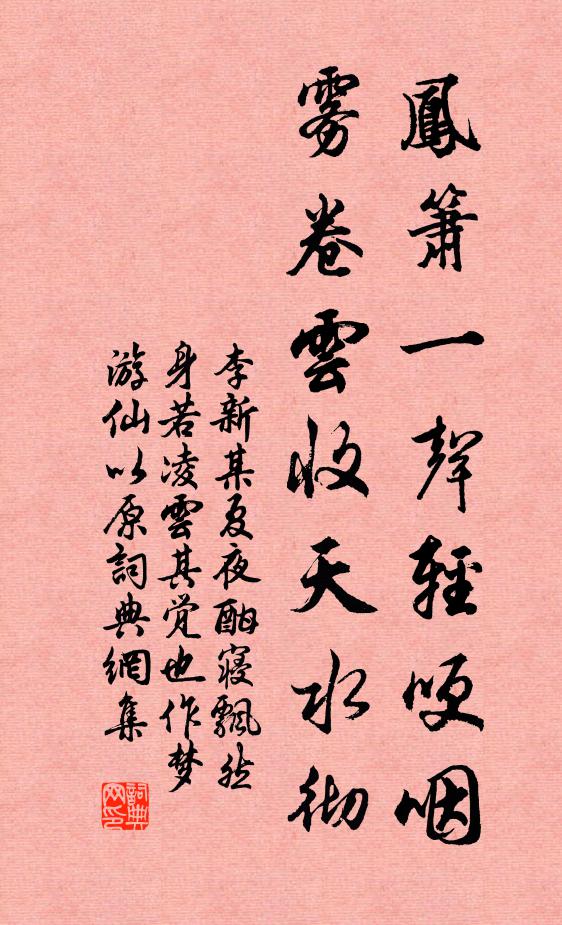 鳳簫一聲輕哽咽
雾卷雲收天水彻
李新某夏夜酣寝飄然
身若凌雲其觉也作梦
游仙以原詞典網集
詞典
网印